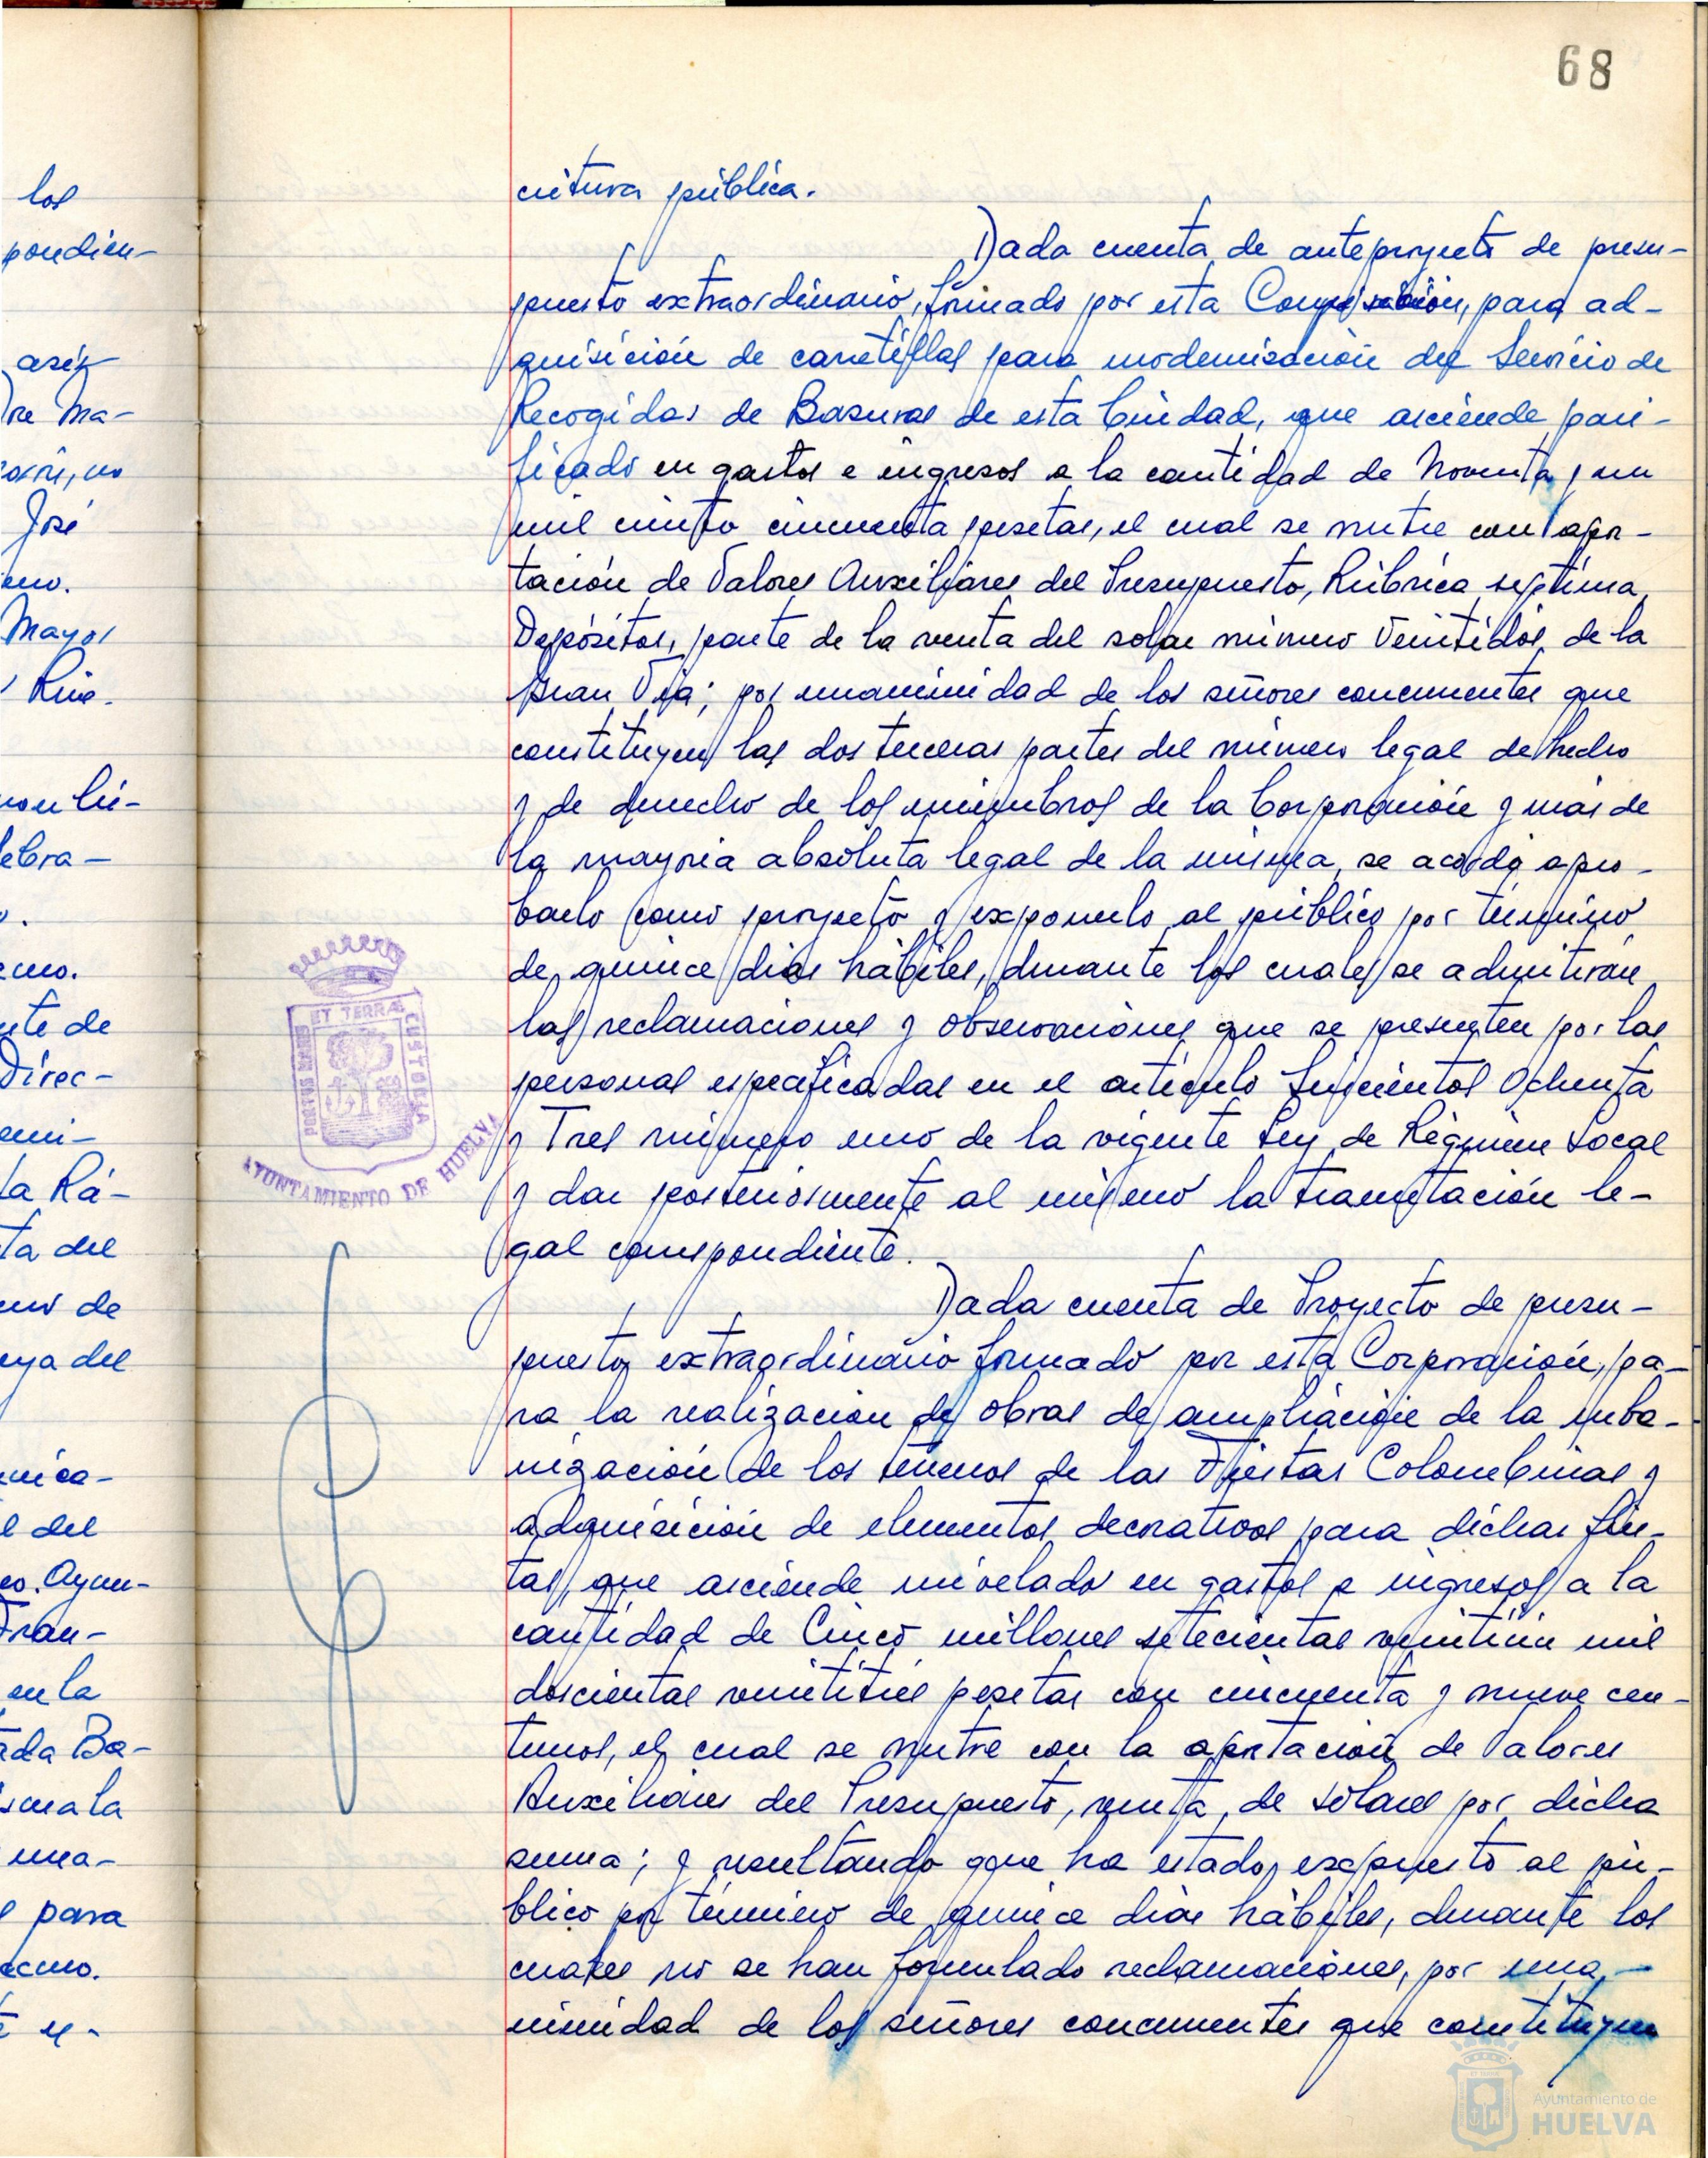 68
los
pondien-
asis
re Ma-
no
José
emo.
Mayor
Rui-
ebra-
emo.
nte de
Direc-
la Rá-
ta del
de
del
nica-
l del
Ayun-
Fran-
en la
ada Ba-
una-
para
ecmo.
critura pública.
Dada cuenta de anteproyecto de presu-
puesto extraordinario, formado por esta Corporación, para ad-
quisición de carretillas para modernización del Servicio de
Recogidas de Basuras de esta Ciudad, que asciende pari-
ficado en gastos e ingresos a la cantidad de Noventa y un
mil ciento cincuenta pesetas, el cual se nutre con apor-
tación de Valores Auxiliares del Presupuesto, Rúbrica septima,
Depósitos, parte de la venta del solar número Veintidós de la
Gran Vía; por unanimidad de los señores concurrentes que
constituyen las dos terceras partes del número legal de hecho
y de derecho de los miembros de la Corporación y más de
la mayoria absoluta legal de la misma, se acordó apro-
barlo como proyecto y exponerlo al público por término
de quince dias hábiles, durante los cuales se admitirán
las reclamaciones y observaciones que se presenten por las
personas especificadas en el artículo Seiscientos Ochenta
y Tres número uno de la vigente Ley de Régimen Local
y dar posteriormente al mismo la tramitación le-
gal correspondiente.
Dada cuenta de Proyecto de presu-
puesto extraordinario formado por esta Corporación, pa-
ra la realización de obras de ampliación de la urba-
nización de los terrenos de las Fiestas Colombinas y
adquisición de elementos decorativos para dichas fies-
tas, que asciende nivelado en gastos e ingresos a la
cantidad de Cinco millones setecientas veintiún mil
doscientas veintitrés pesetas con cincuenta y nueve cen-
timos, el cual se nutre con la aportación de Valores
Auxiliares del Presupuesto, venta de solares por dicha
suma; y resultando que ha estado expuesto al pú-
blico por término de quince dias hábiles, durante los
cuales no se han formulado reclamaciones, por una-
nimidad de los señores concurrentes que constituyen
PORTUS MARIS ET TERRAE CUSTODIA
AYUNTAMIENTO DE HUELVA
Ayuntamiento de
HUELVA